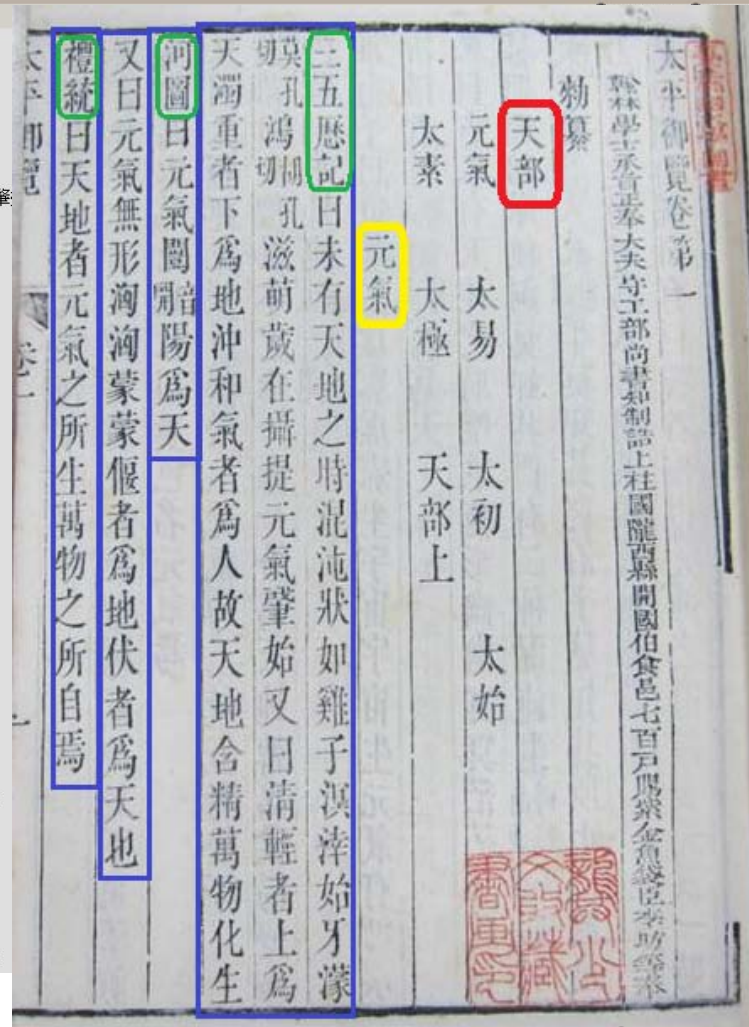 太平御覽卷第一
翰林學士承旨正奉大夫守工部尚書知制誥上柱國隴西縣開國伯食邑七百戶賜紫金魚袋臣李昉等奉
勑纂
天部
元氣 太易 太初 太始
太素 太極 天部上
元氣
三五厯記曰未有天地之時混沌狀如雞子溟涬始牙濛
莫孔切鴻胡孔切滋萌歲在攝提元氣肇始又曰清輕者上爲
天濁重者下爲地沖和氣者爲人故天地含精萬物化生
河圖曰元氣闓音開陽爲天
又曰元氣無形洶洶蒙蒙偃者爲地伏者爲天也
禮統曰天地者元氣之所生萬物之所自焉
太平御覽 卷一 一